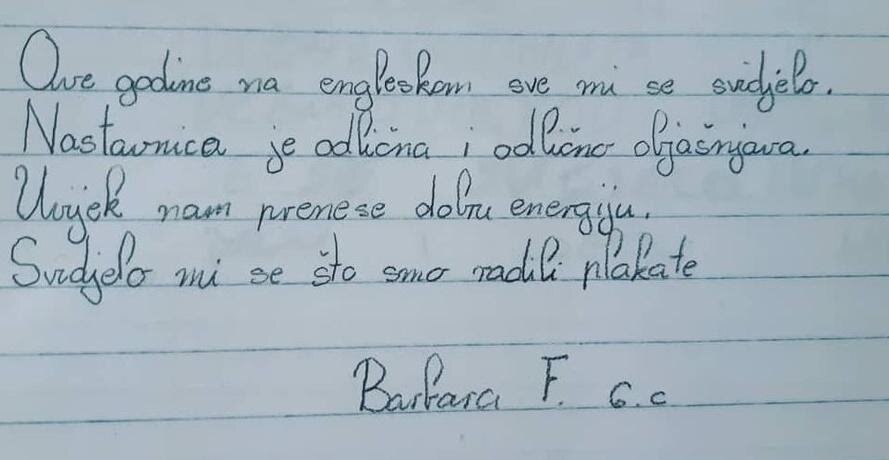 Ove godine na engleskom sve mi se svidjelo.
Nastavnica je odlična i odlično objašnjava.
Uvijek nam prenese dobru energiju.
Svidjelo mi se što smo radili plakate
Barbara F. 6.c